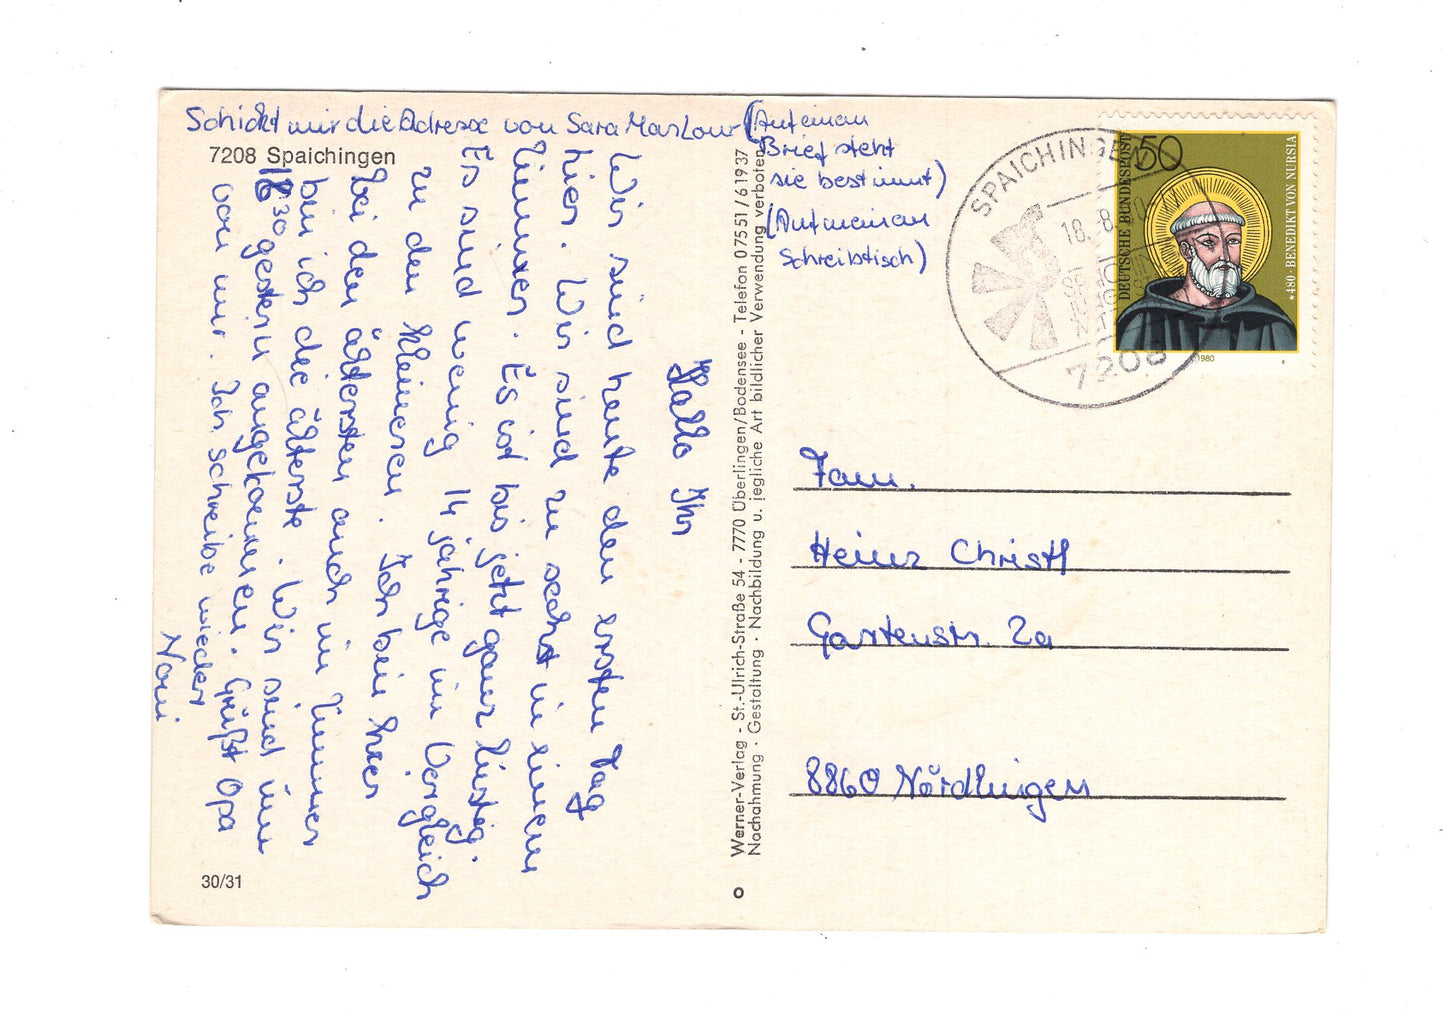 Schickt mir die Adresse von Sara
(Auf einem
Brief steht
sie bestimmt)
(Auf meinem
Schreibtisch)
7208 Spaichingen
Hallo Ihr
Wir sind heute den ersten Tag
hier. Wir sind zu sechst in einem
Zimmer. Es ist bis jetzt ganz lustig.
Es sind wenig 14 jährige im Vergleich
zu den kleineren. Ich bin hier
bei den ältesten auch im Zimmer
bin ich die älteste. Wir sind um
18 30 gestern angekommen. Grüßt Opa
von mir. Ich schreibe wieder
Noni
30/31
Werner-Verlag - St.-Ulrich-Straße 54 - 7770 Überlingen/Bodensee - Telefon 07551/61937
Nachahmung · Gestaltung · Nachbildung u. jegliche Art bildlicher Verwendung verboten
SPAICHINGEN
18. 8.
7208
50
DEUTSCHE BUNDESPOST
* 480 · BENEDIKT VON NURSIA
1980
Fam.
Heinz Christl
Gartenstr. 2a
8860 Nördlingen